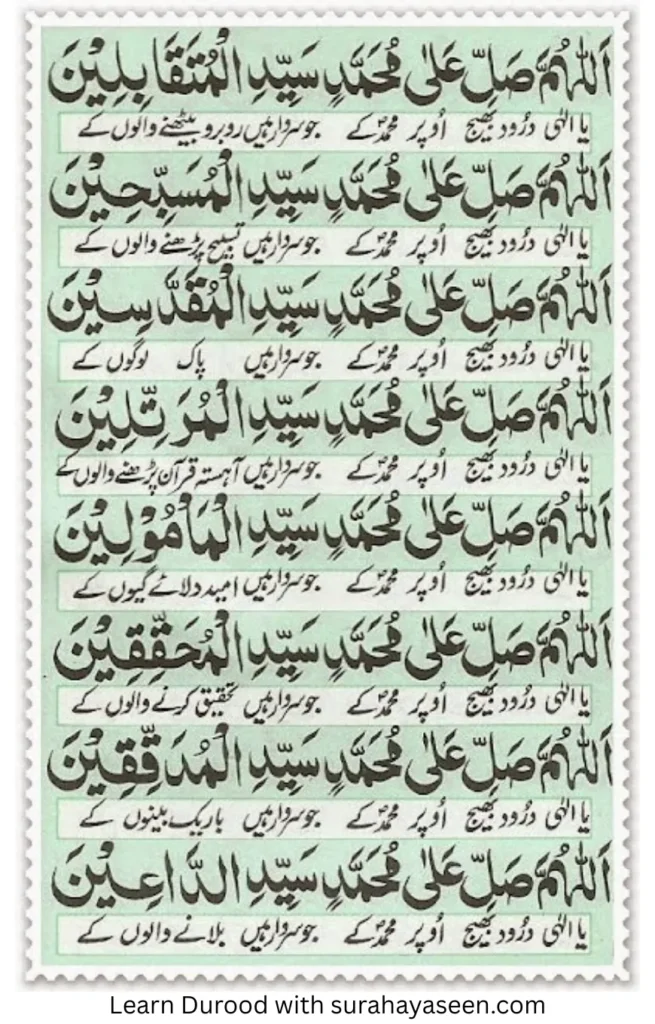 اَللّٰهُمَّ صَلِّ عَلٰى مُحَمَّدٍ سَيِّدِ الْمُتَقَابِلِيْنَ
یا الٰہی درُود بھیج اُوپر محمدؐ کے جو سردار ہیں روبرو بیٹھنے والوں کے
اَللّٰهُمَّ صَلِّ عَلٰى مُحَمَّدٍ سَيِّدِ الْمُسَبِّحِيْنَ
یا الٰہی درُود بھیج اُوپر محمدؐ کے جو سردار ہیں تسبیح پڑھنے والوں کے
اَللّٰهُمَّ صَلِّ عَلٰى مُحَمَّدٍ سَيِّدِ الْمُقَدَّسِيْنَ
یا الٰہی درُود بھیج اُوپر محمدؐ کے جو سردار ہیں پاک لوگوں کے
اَللّٰهُمَّ صَلِّ عَلٰى مُحَمَّدٍ سَيِّدِ الْمُرَتِّلِيْنَ
یا الٰہی درُود بھیج اُوپر محمدؐ کے جو سردار ہیں آہستہ قرآن پڑھنے والوں کے
اَللّٰهُمَّ صَلِّ عَلٰى مُحَمَّدٍ سَيِّدِ الْمَأْمُوْلِيْنَ
یا الٰہی درُود بھیج اُوپر محمدؐ کے جو سردار ہیں امید دلائے گیوں کے
اَللّٰهُمَّ صَلِّ عَلٰى مُحَمَّدٍ سَيِّدِ الْمُحَقِّقِيْنَ
یا الٰہی درُود بھیج اُوپر محمدؐ کے جو سردار ہیں تحقیق کرنے والوں کے
اَللّٰهُمَّ صَلِّ عَلٰى مُحَمَّدٍ سَيِّدِ الْمُدَقِّقِيْنَ
یا الٰہی درُود بھیج اُوپر محمدؐ کے جو سردار ہیں باریک بینوں کے
اَللّٰهُمَّ صَلِّ عَلٰى مُحَمَّدٍ سَيِّدِ الدَّاعِيْنَ
یا الٰہی درُود بھیج اُوپر محمدؐ کے جو سردار ہیں بلانے والوں کے
Learn Durood with surahayaseen.com